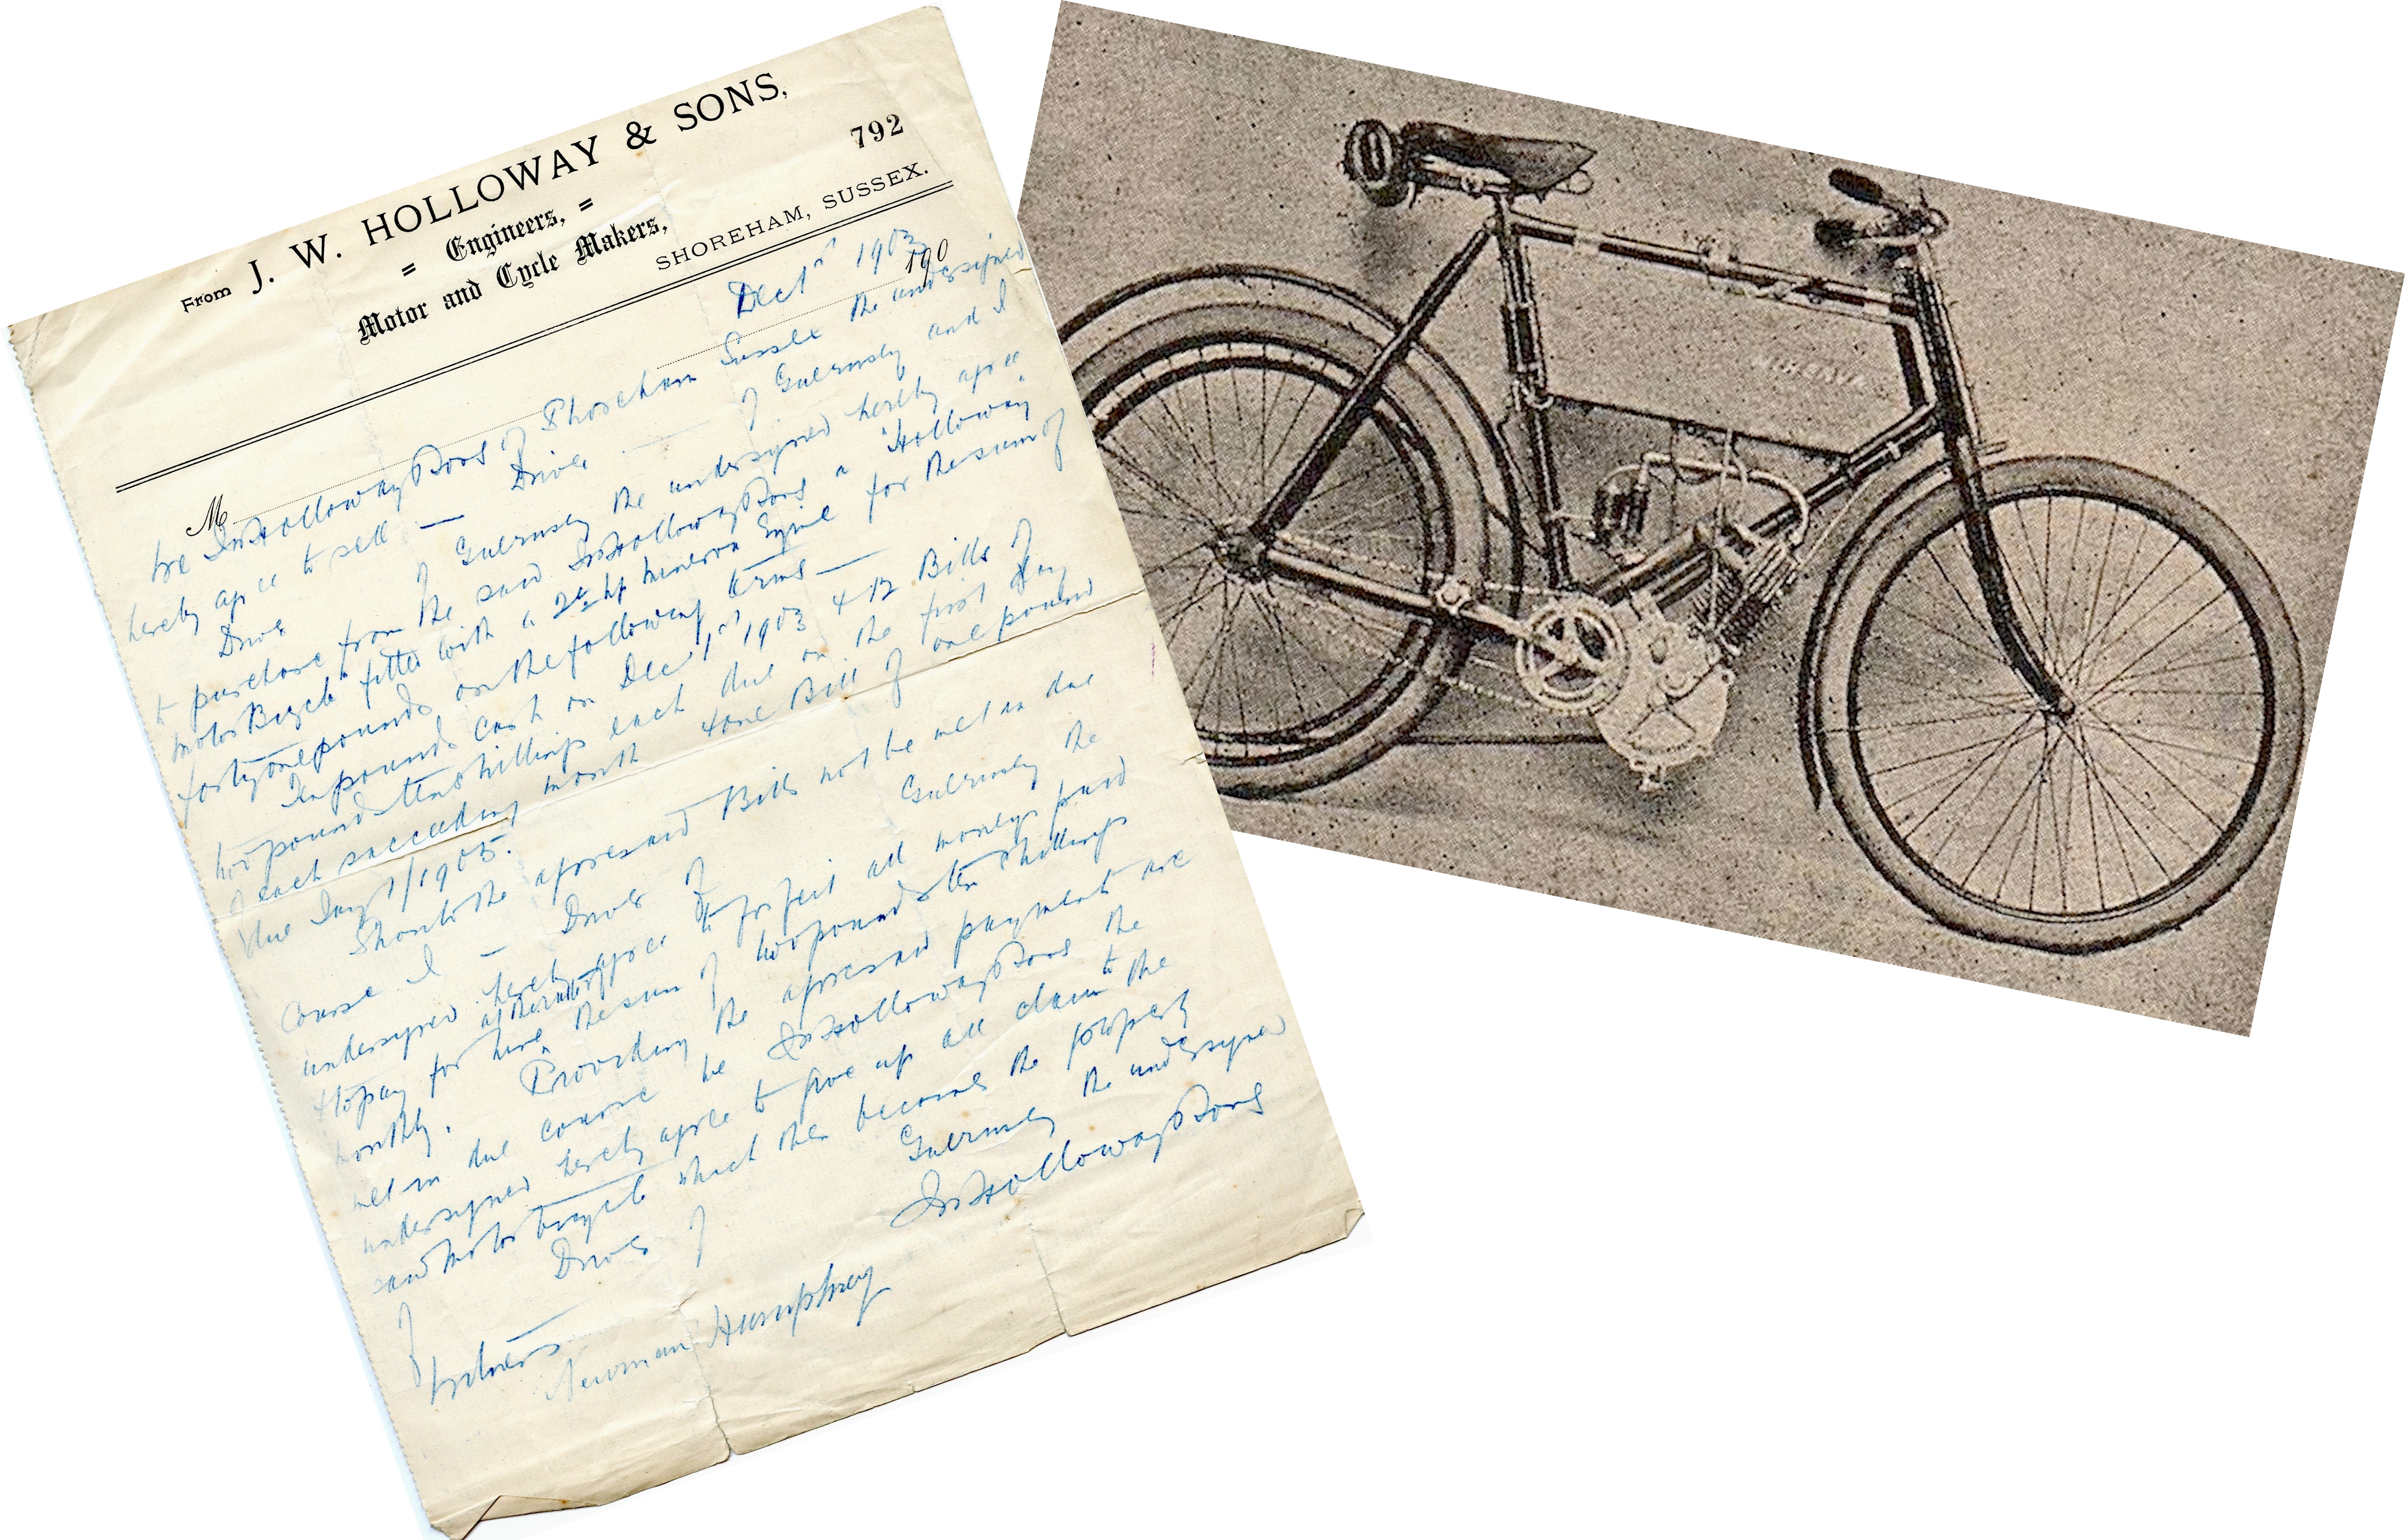 From J. W. HOLLOWAY & SONS,
= Engineers, =
792
Motor and Cycle Makers,
SHOREHAM, SUSSEX.
Dec 1st 1903
190
M
We JW Holloway & Sons of Shoreham Sussex the undersigned
hereby agree to sell — Drives — of Guernsey and I
Drives of Guernsey the undersigned hereby agree
to purchase from the said JW Holloway & Sons a "Holloway"
Motor Bicycle fitted with a 2¾ hp Minerva Engine for the sum of
forty one pounds on the following terms —
Ten pounds cash on Dec 1st 1903 & 12 Bills of
two pounds ten shillings each due on the first day
of each succeeding month & one Bill of one pound
due Jany 1/1905.
Should the aforesaid Bills not be met in due
course I — Drives of Guernsey the
undersigned hereby agree to forfeit all moneys paid
& to pay for hire the sum of two pounds ten shillings
monthly. Providing the aforesaid payments are
met in due course we JW Holloway & Sons the
undersigned hereby agree to give up all claim to the
said Motor bicycle which then becomes the property
of Drives of Guernsey the undersigned
JW Holloway & Sons
Witness
Newman Humphrey